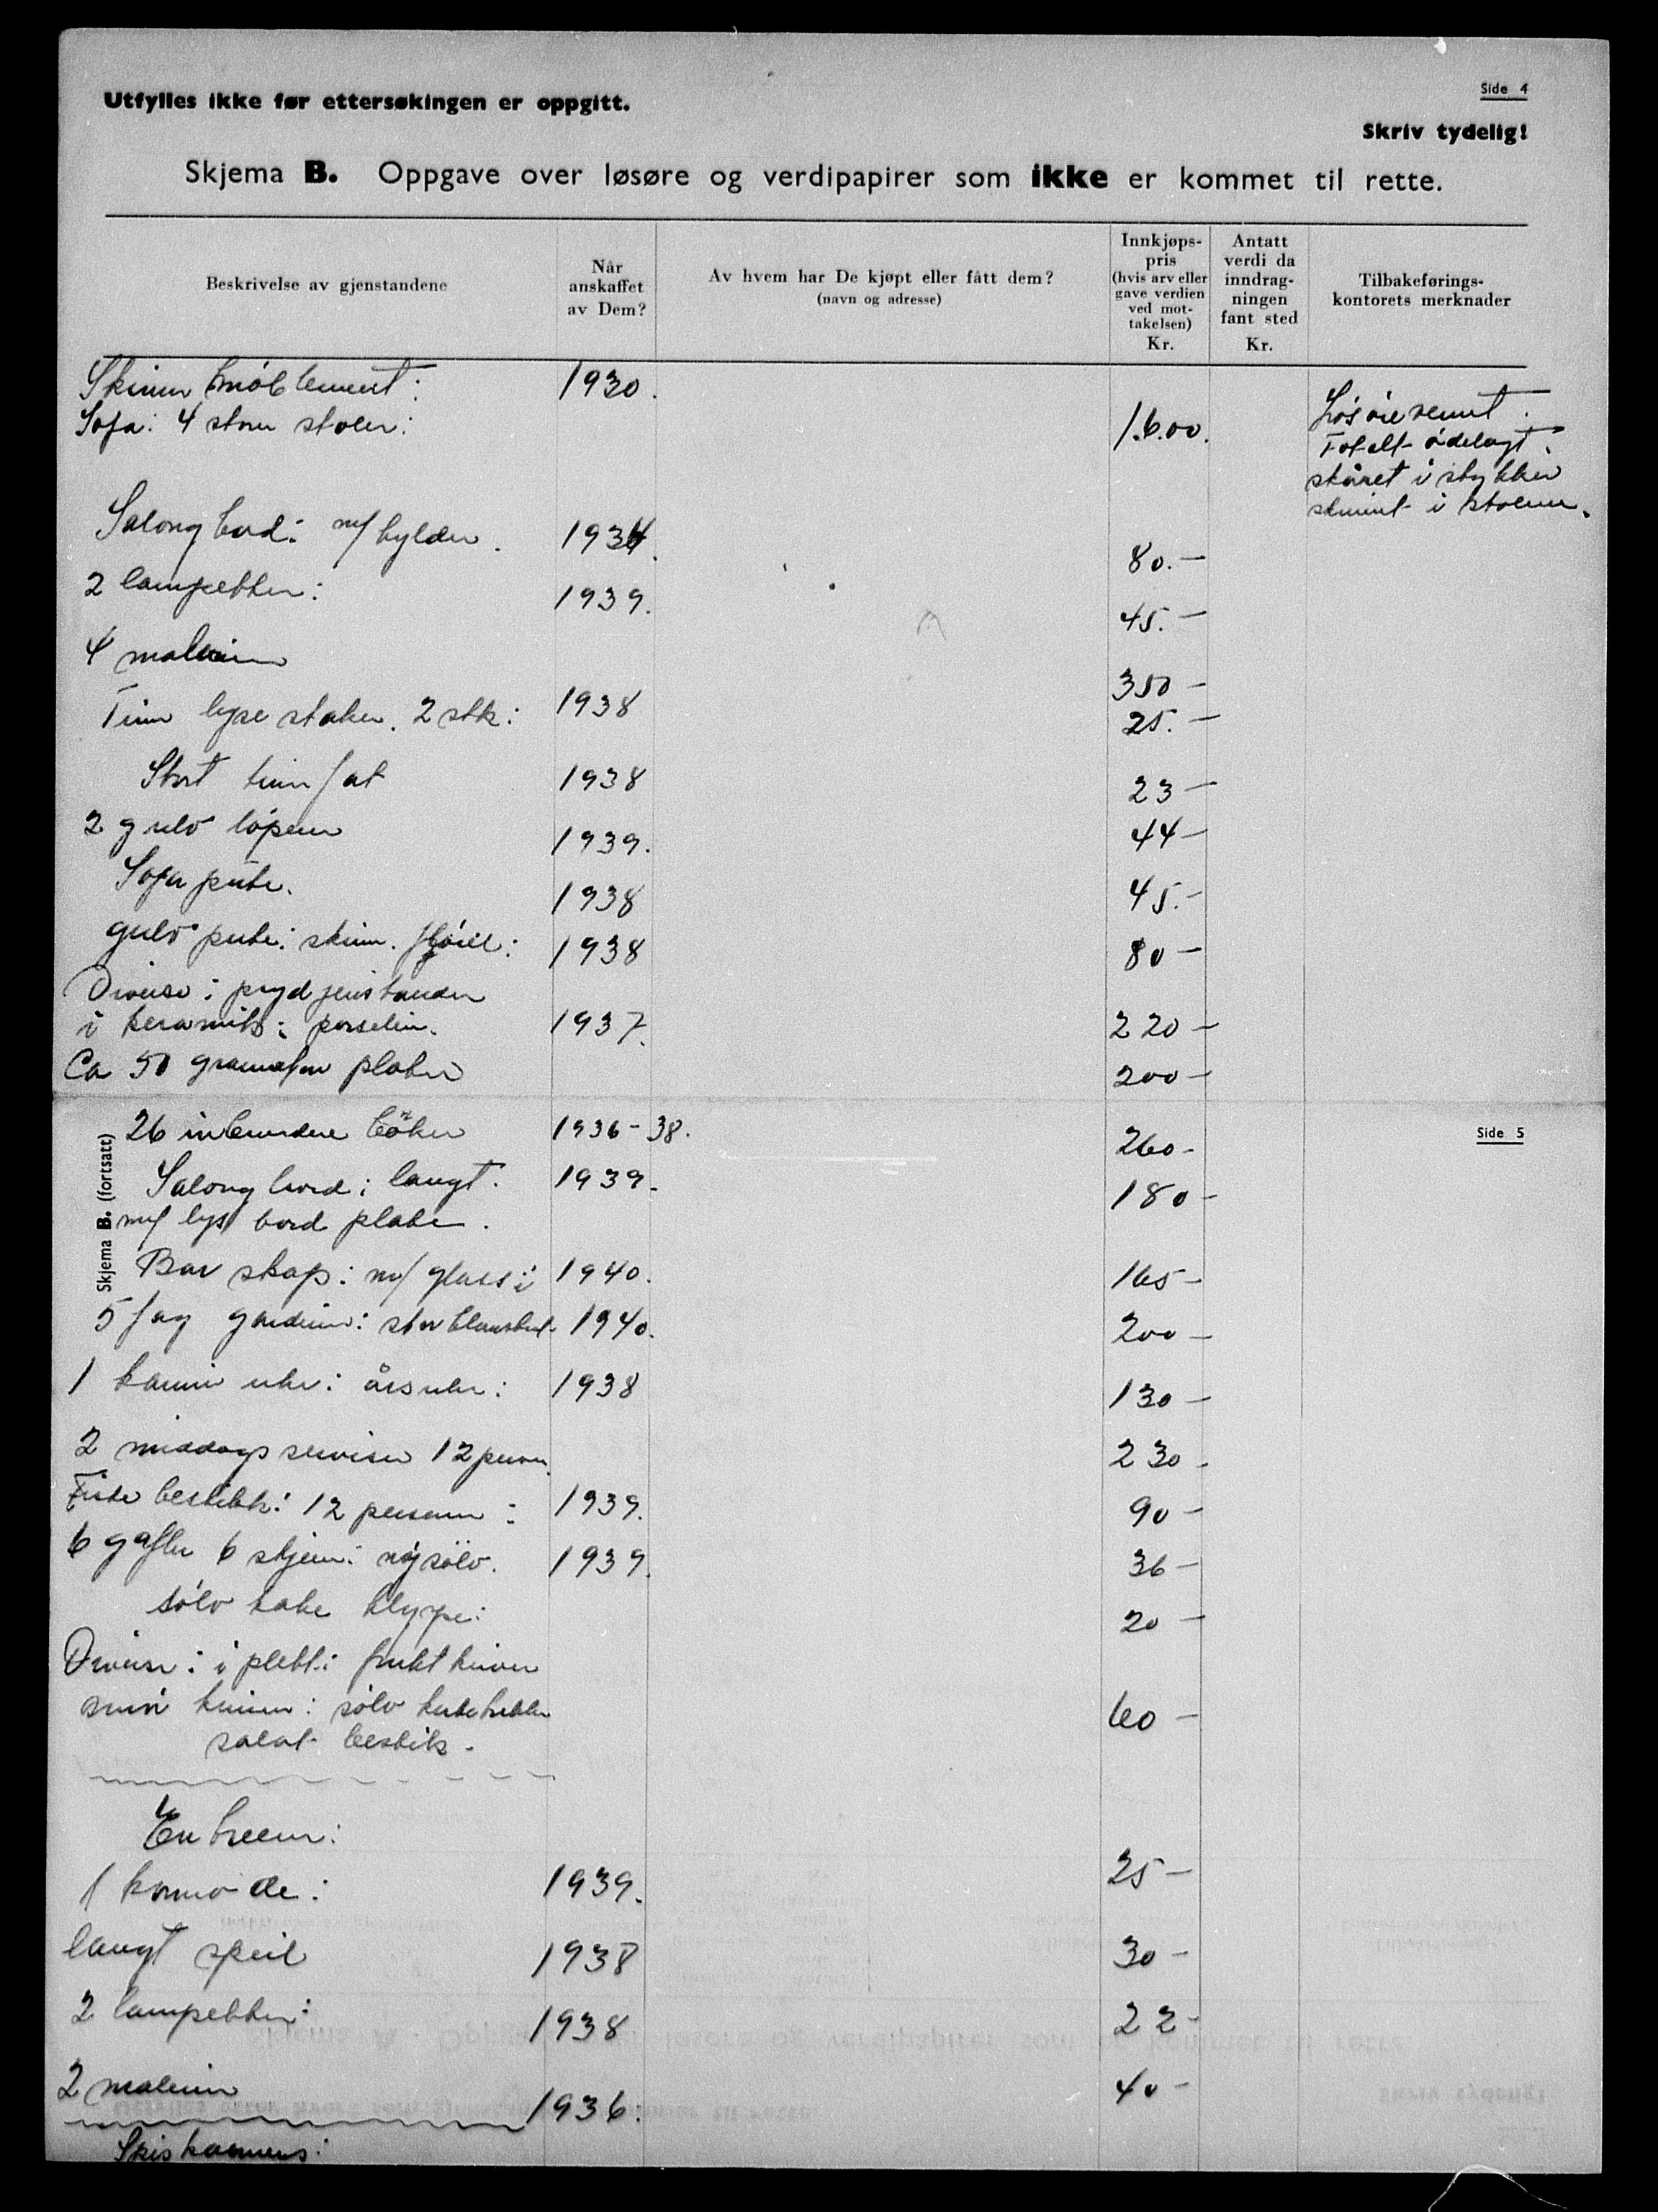 Side 4
Utfylles ikke før ettersøkingen er oppgitt.
Skriv tydelig!
Skjema B. Oppgave over løsøre og verdipapirer som ikke er kommet til rette.
Beskrivelse av gjenstandene
Når anskaffet av Dem?
Av hvem har De kjøpt eller fått dem? (navn og adresse)
Innkjøps-pris (hvis arv eller gave verdien ved mot-takelsen) Kr.
Antatt verdi da inndrag-ningen fant sted Kr.
Tilbakeførings-kontorets merknader
Skinn möblement: 1930.
Sofa: 4 store stoler: 1.600.
Totalt ödelagt.
skåret i stykker
skinnet i stolene.
Salong bord: m/ hylder. 1934. 80.—
2 lampetter: 1939. 45.—
4 malerier 350 —
Tinn lyse staker. 2 stk: 1938 25.—
Stort tinn fat 1938 23 —
2 gulv löpere 1939. 44 —
Sofa pute. 1938 45.-
gulv pute: skinn. 1938 80 —
Diverse: pryd jenstander
i keramik: porselin. 1937. 220 —
Ca 50 gramofon plater 200 —
Side 5
Skjema B. (fortsatt)
26 inbundene böker 1936 - 38. 260 -
Salong bord: langt. 1939. 180 -
m/ lys bord plate.
Bar skap: m/ glass i 1940. 165 —
5 fag gardiner: 1940. 200 —
1 kamin uhr: årsuhr: 1938 130 —
2 middags serviser 12 person. 230 -
Fiske bestikk: 12 personer: 1939. 90 -
6 gafler 6 skjeer: nysölv. 1939. 36 —
sölv kake klype: 20 —
Diverse: i plett: frukt kniver
smör kniver: sölv 60 —
salat bestik.
Entreen:
1 komode: 1939. 25 —
langt speil 1938 30 -
2 lampetter: 1938 22 -
2 malerier 1936. 40 -
Spis kammers: